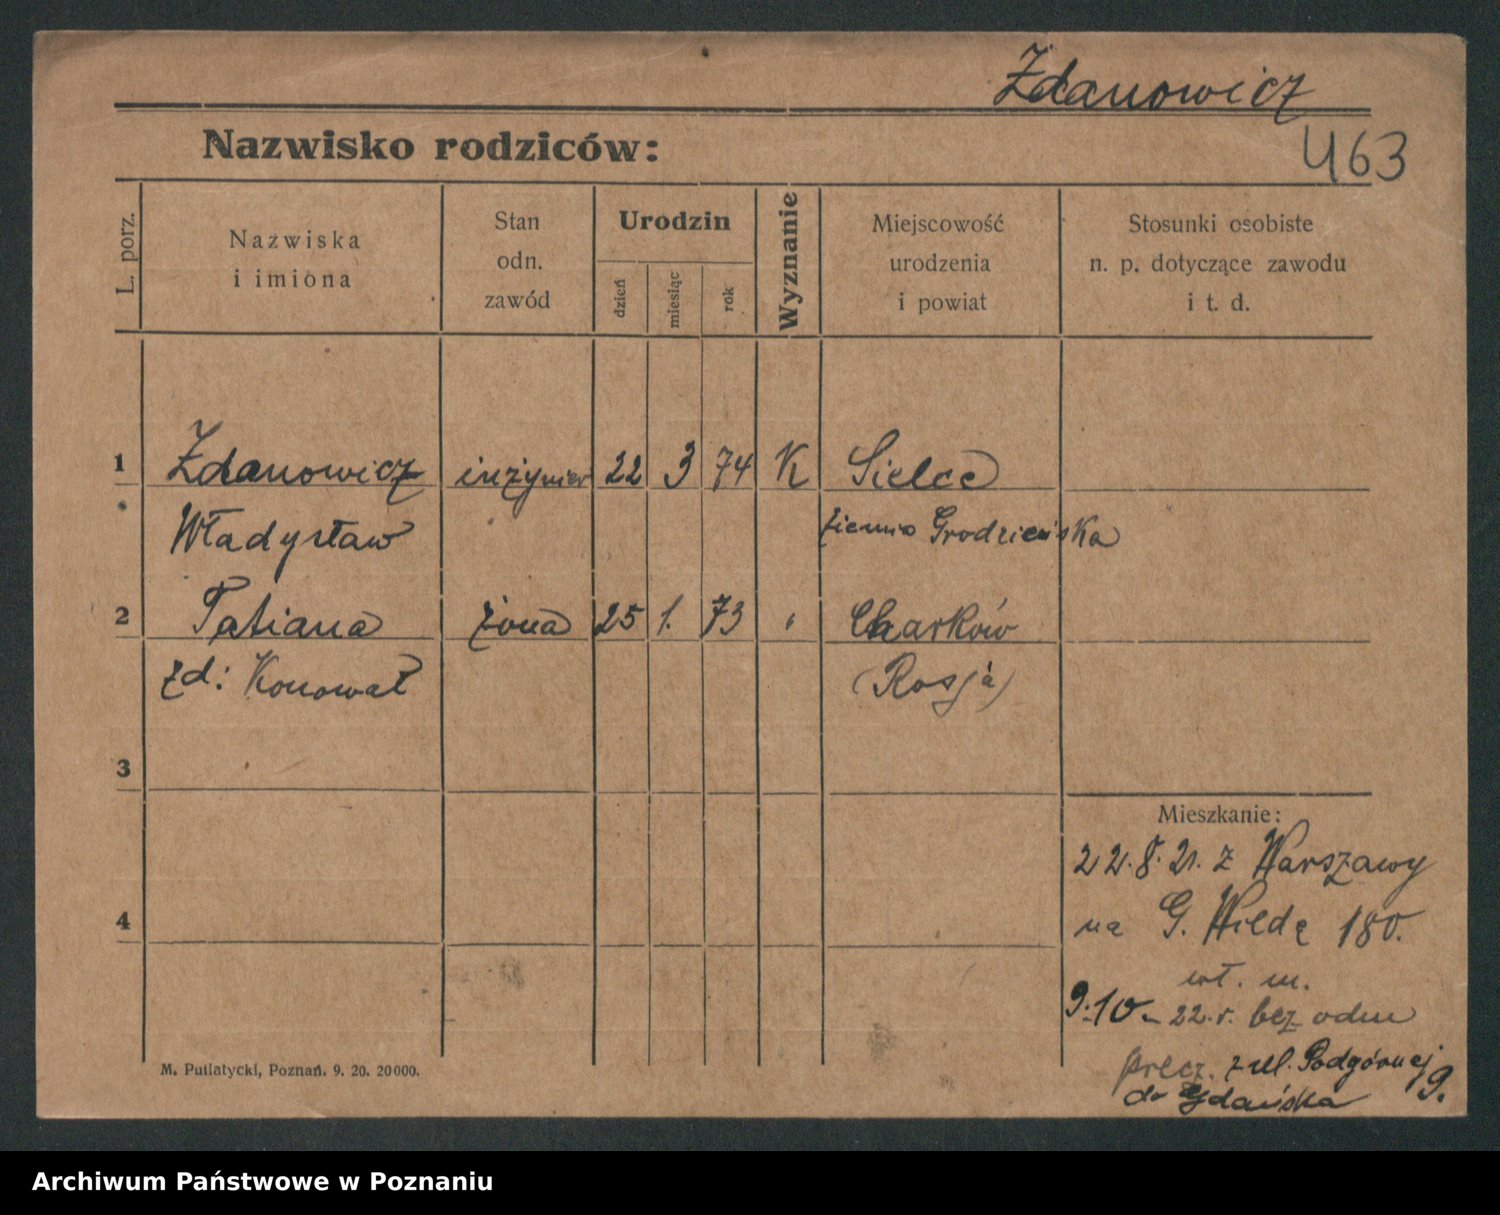 Zdanowicz
Nazwisko rodziców:
463
L. porz.
Nazwiska
i imiona
Stan
odn.
zawód
Urodzin
dzień
miesiąc
rok
Wyznanie
Miejscowość
urodzenia
i powiat
Stosunki osobiste
n. p. dotyczące zawodu
i t. d.
1 Zdanowicz inżynier 22 3 74 K Sielce
Władysław ziemia Grodzieńska
2 Tatiana żona 25 1. 73 " Charków
zd: Konował (Rosja)
3
Mieszkanie:
22.8.21. z Warszawy
4
na G. Wildę 180.
wł. m.
9.10.22.r. bez odm
z ul. Podgórnej 9.
do Gdańska
M. Putiatycki, Poznań. 9. 20. 20000.
Archiwum Państwowe w Poznaniu